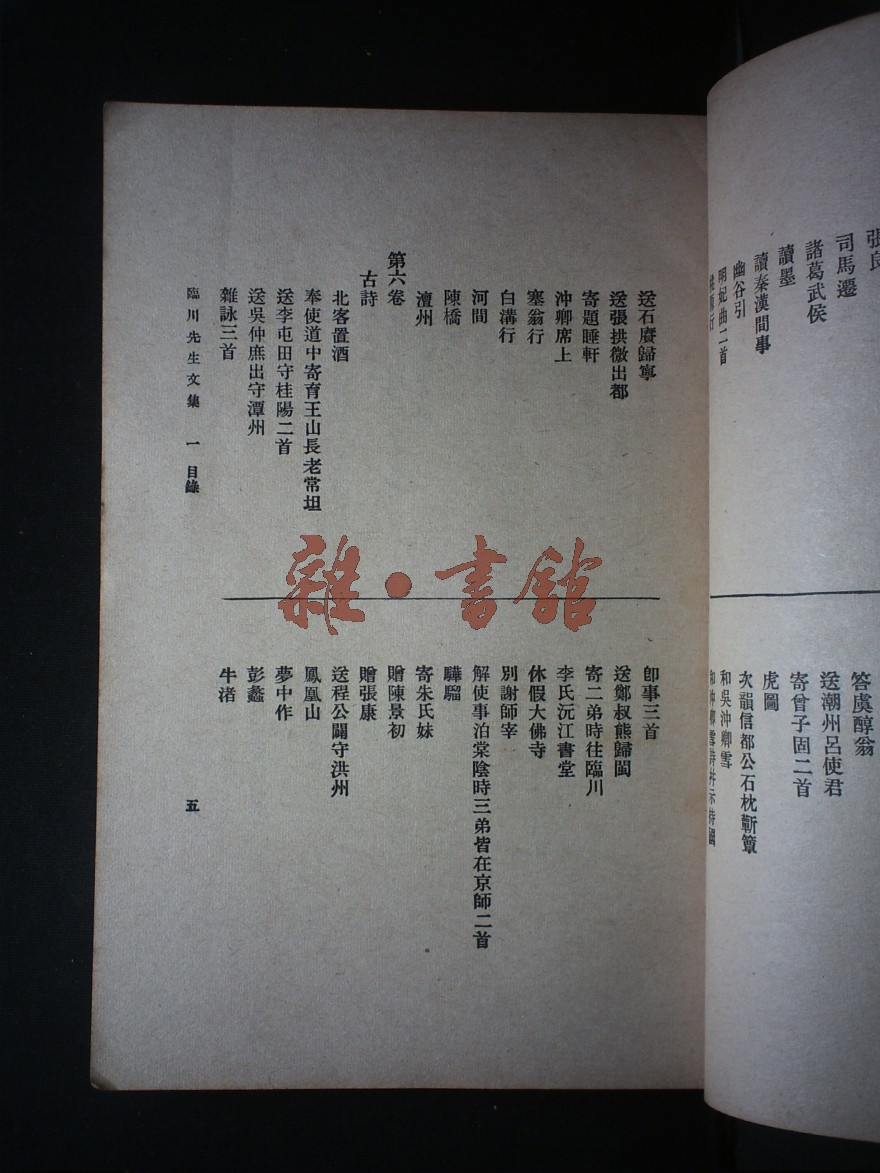 張良
司馬遷
諸葛武侯
讀墨
讀秦漢間事
幽谷引
明妃曲二首
行
答虞醇翁
送潮州呂使君
寄曾子固二首
虎圖
次韻信都公石枕蘄簟
和吳沖卿雪
和沖卿雪詩并示持國
送石賡歸寧
送張拱微出都
寄題睡軒
沖卿席上
塞翁行
白溝行
河間
陳橋
澶州
第六卷
古詩
北客置酒
奉使道中寄育王山長老常坦
送李屯田守桂陽二首
送吳仲庶出守潭州
雜詠三首
即事三首
送鄭叔熊歸閩
寄二弟時往臨川
李氏沅江書堂
休假大佛寺
別謝師宰
解使事泊棠陰時三弟皆在京師二首
驊騮
寄朱氏妹
贈陳景初
贈張康
送程公闢守洪州
鳳凰山
夢中作
彭蠡
牛渚
臨川先生文集 一 目錄
五
雜·書館